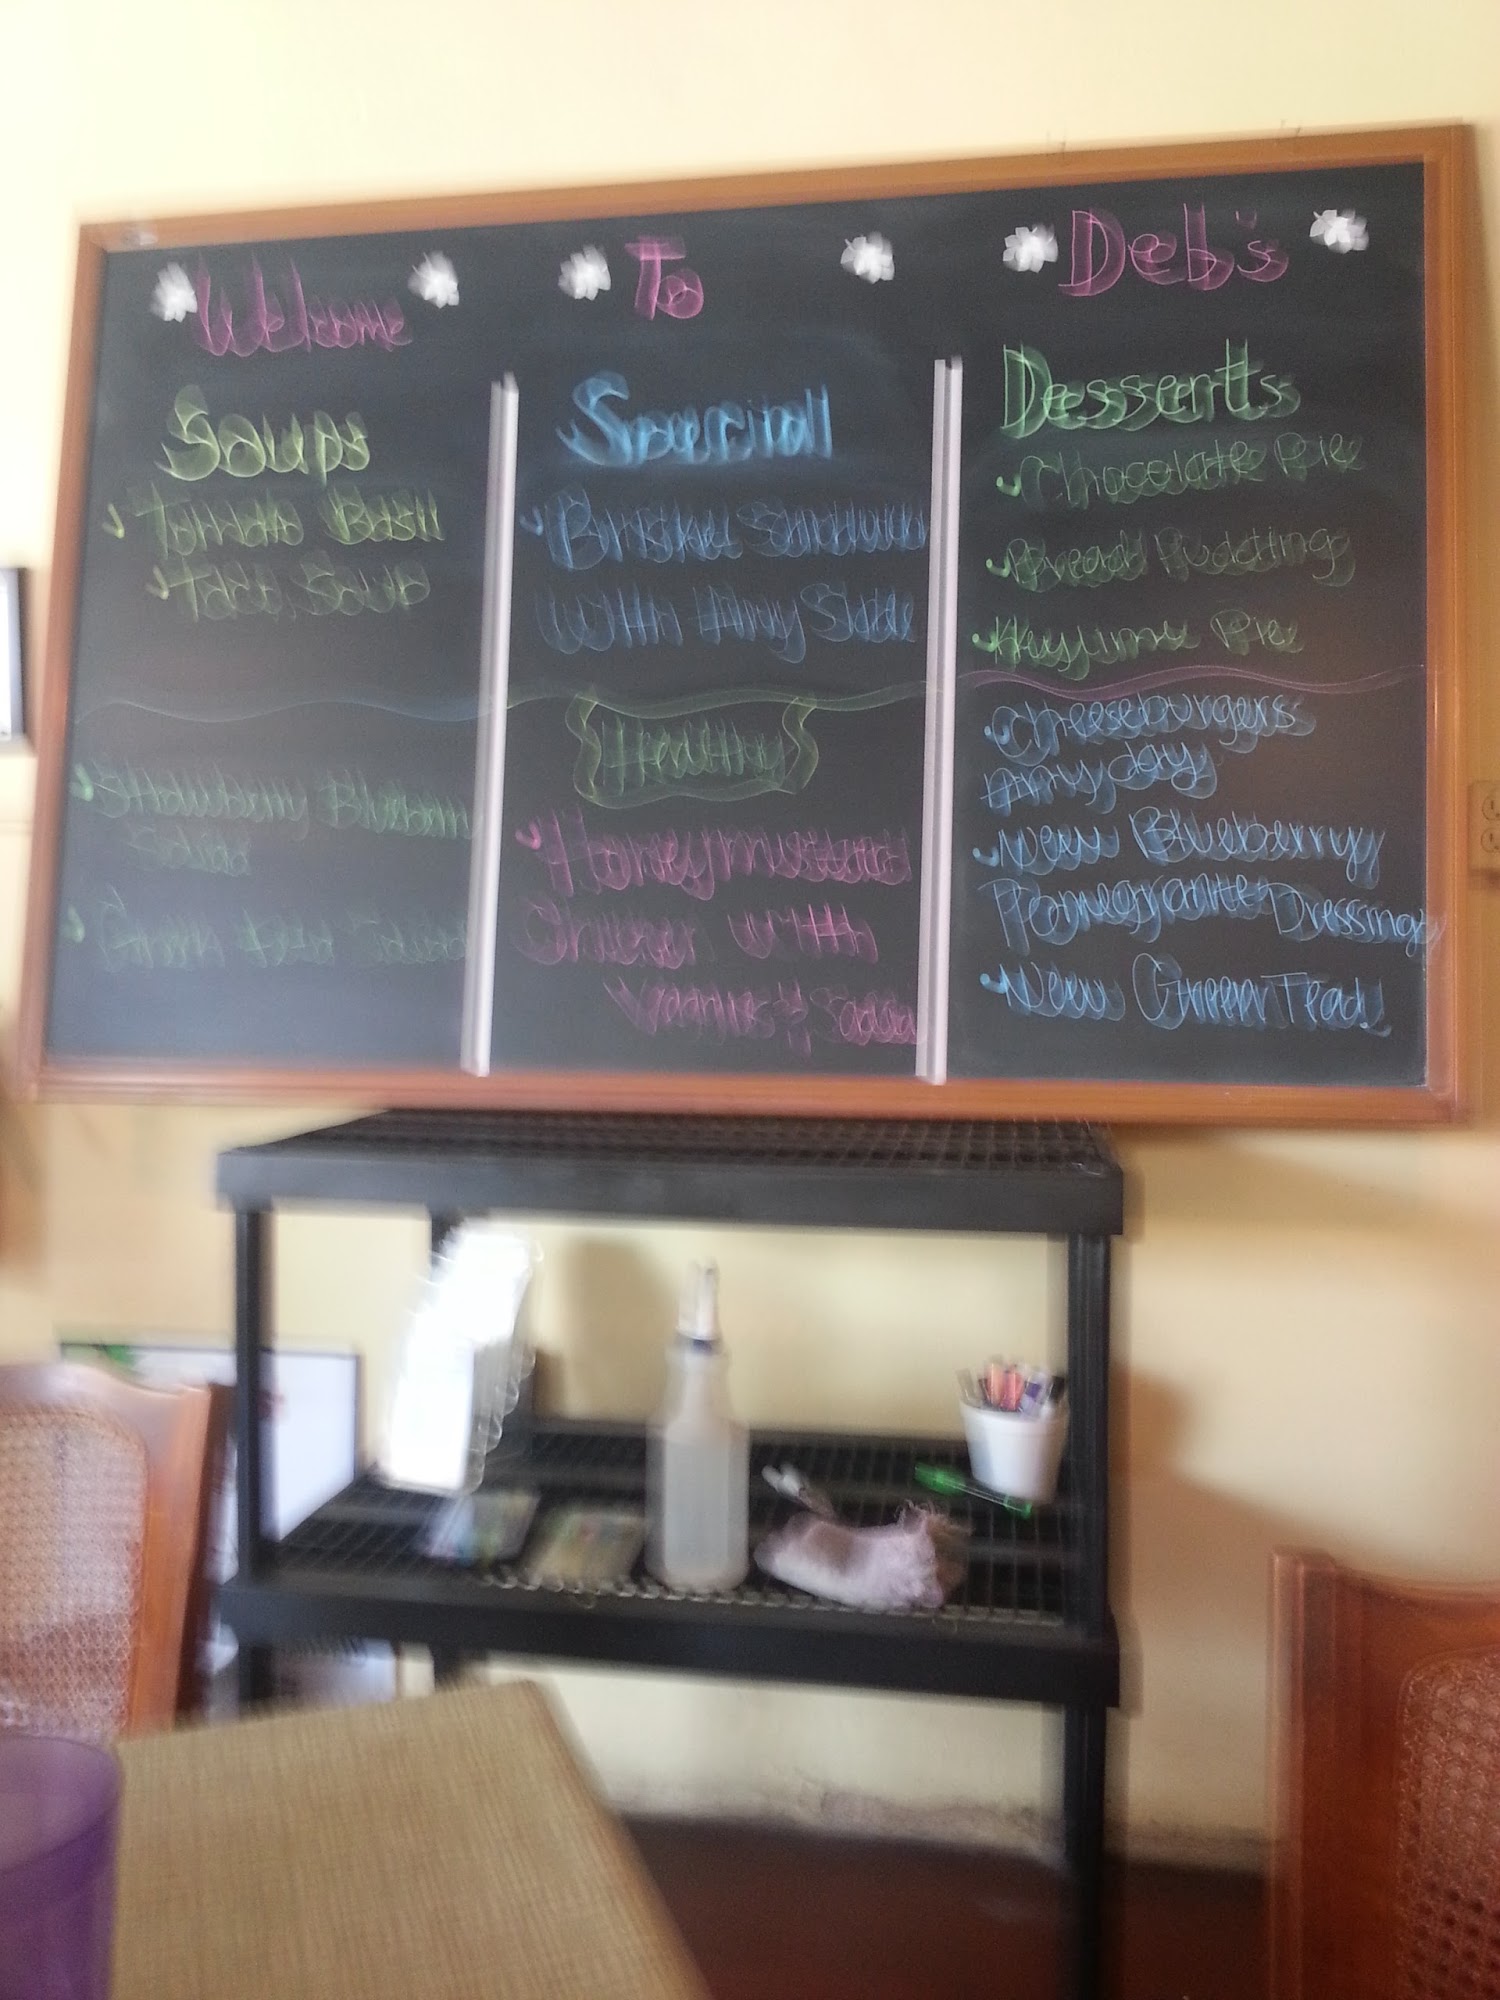 Welcome To Deb's
Soups
Tomato Basil
Taco Soup
Strawberry Blueberry
Salad
Salad
Special
Brisket Sandwich
With Any Side
Healthy
Honeymustard
Chicken with
Veggies & Salad
Desserts
Chocolate Pie
Bread Pudding
Keylime Pie
Cheeseburgers
Any day
New Blueberry
Dressing
New Green Tea